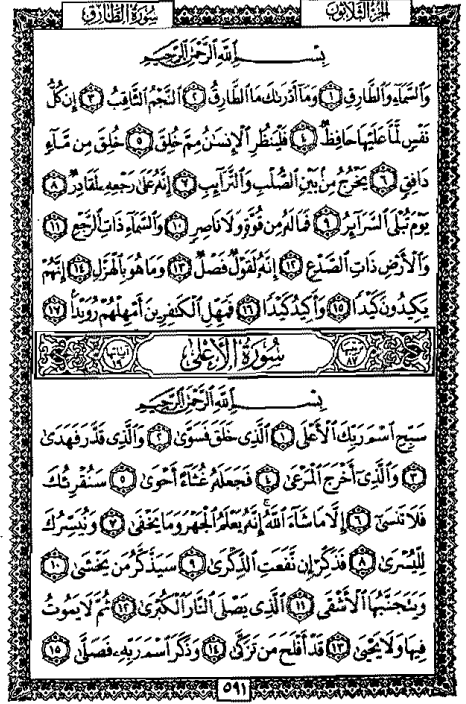 سُورَةُ الطَّارِقِ الجُزءُ الثَّلَاثُونَ
بِسْمِ اللَّهِ الرَّحْمَٰنِ الرَّحِيمِ
وَالسَّمَآءِ وَالطَّارِقِ ١ وَمَآ أَدْرَىٰكَ مَا الطَّارِقُ ٢ النَّجْمُ الثَّاقِبُ ٣ إِن كُلُّ
نَفْسٍ لَّمَّا عَلَيْهَا حَافِظٌ ٤ فَلْيَنظُرِ الْإِنسَٰنُ مِمَّ خُلِقَ ٥ خُلِقَ مِن مَّآءٍ
دَافِقٍ ٦ يَخْرُجُ مِنۢ بَيْنِ الصُّلْبِ وَالتَّرَآئِبِ ٧ إِنَّهُۥ عَلَىٰ رَجْعِهِۦ لَقَادِرٌ ٨
يَوْمَ تُبْلَى السَّرَآئِرُ ٩ فَمَا لَهُۥ مِن قُوَّةٍ وَلَا نَاصِرٍ ١٠ وَالسَّمَآءِ ذَاتِ الرَّجْعِ ١١
وَالْأَرْضِ ذَاتِ الصَّدْعِ ١٢ إِنَّهُۥ لَقَوْلٌ فَصْلٌ ١٣ وَمَا هُوَ بِالْهَزْلِ ١٤ إِنَّهُمْ
يَكِيدُونَ كَيْدًا ١٥ وَأَكِيدُ كَيْدًا ١٦ فَمَهِّلِ الْكَٰفِرِينَ أَمْهِلْهُمْ رُوَيْدًۢا ١٧
سُورَةُ الأَعْلَىٰ آياتها ١٩
بِسْمِ اللَّهِ الرَّحْمَٰنِ الرَّحِيمِ
سَبِّحِ اسْمَ رَبِّكَ الْأَعْلَى ١ الَّذِى خَلَقَ فَسَوَّىٰ ٢ وَالَّذِى قَدَّرَ فَهَدَىٰ
٣ وَالَّذِىٓ أَخْرَجَ الْمَرْعَىٰ ٤ فَجَعَلَهُۥ غُثَآءً أَحْوَىٰ ٥ سَنُقْرِئُكَ
فَلَا تَنسَىٰٓ ٦ إِلَّا مَا شَآءَ اللَّهُ إِنَّهُۥ يَعْلَمُ الْجَهْرَ وَمَا يَخْفَىٰ ٧ وَنُيَسِّرُكَ
لِلْيُسْرَىٰ ٨ فَذَكِّرْ إِن نَّفَعَتِ الذِّكْرَىٰ ٩ سَيَذَّكَّرُ مَن يَخْشَىٰ ١٠
وَيَتَجَنَّبُهَا الْأَشْقَى ١١ الَّذِى يَصْلَى النَّارَ الْكُبْرَىٰ ١٢ ثُمَّ لَا يَمُوتُ
فِيهَا وَلَا يَحْيَىٰ ١٣ قَدْ أَفْلَحَ مَن تَزَكَّىٰ ١٤ وَذَكَرَ اسْمَ رَبِّهِۦ فَصَلَّىٰ ١٥
٥٩١